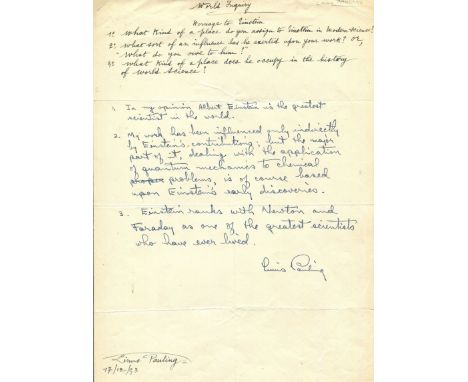 World Inquiry
Homage to Einstein
1º What kind of a place do you assign to Einstein in Modern Science?
2º What sort of an influence has he exerted upon your work? or,
"What do you owe to him?"
3º What kind of a place does he occupy in the history
of world science?
1. In my opinion Albert Einstein is the greatest
scientist in the world.
2. My work has been influenced only indirectly
by Einstein's contributions; but the major
part of it, dealing with the application
of quantum mechanics to chemical
problems, is of course based
upon Einstein's early discoveries.
3. Einstein ranks with Newton and
Faraday as one of the greatest scientists
who have ever lived.
Linus Pauling
"Linus" Pauling
17/12/53